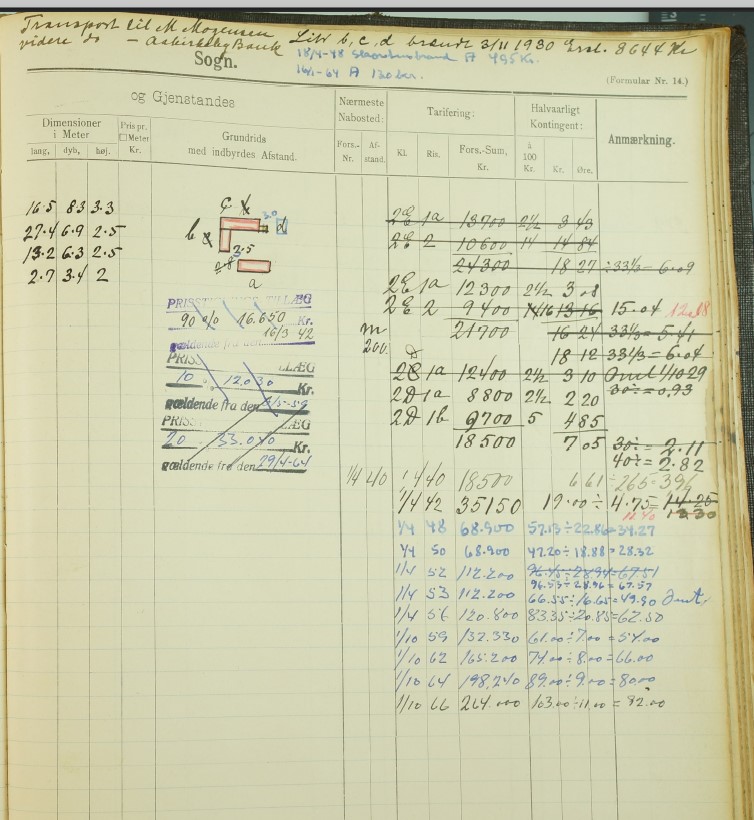 Transport til M Mogensen
videre do — Aakirkeby Bank
Litr b, c, d brændt 3/11 1930 Erst. 8644 Kr
18/4-48 Skorstensbrand A 495 Kr.
16/1-64 A 120 kr.
Sogn.
(Formular Nr. 14.)
og Gjenstandes
Nærmeste Nabosted:
Tarifering:
Halvaarligt Kontingent:
Anmærkning.
Dimensioner i Meter
Pris pr. □Meter Kr.
Grundrids med indbyrdes Afstand.
lang, dyb, høj.
Fors.-Nr. Afstand.
Kl. Ris. Fors.-Sum, Kr.
à 100 Kr. Kr. Øre.
16.5 8.3 3.3
27.4 6.9 2.5
13.2 6.3 2.5
2.7 3.4 2
c
b
3.0
d
2.5
2.8
a
2E 1a 13700 2½ 3 43
2E 2 10600 14 14 84
24300 18 27 ÷33⅓ = 6.09
2E 1a 12300 2½ 3.08
2E 2 9400 14/16 13 16 15.04
21700 16 24 33⅓ = 5.41
18 12 33⅓ = 6.04
m
200
D
2E 1a 12400 2½ 3 10 Omt 1/10 29
2D 1a 8800 2½ 2 20 30÷ = 0.93
2D 1b 9700 5 4 85
18500 7 05 30÷ = 2.11
40÷ = 2.82
1/4 40 1/4 40 18500 6 61 ÷ 265 = 396
1/4 42 35150 19.00 ÷ 4.75 = 14.25
1/4 48 68.900 57.13 ÷ 22.86 = 34.27
1/4 50 68.900 47.20 ÷ 18.88 = 28.32
1/4 52 112.200 96.45 ÷ 28.94 = 67.51
96.53 ÷ 28.96 = 67.57
1/4 53 112.200 66.55 ÷ 16.65 = 49.90
1/4 56 120.800 83.35 ÷ 20.85 = 62.50
1/10 59 132.330 61.00 ÷ 7.00 = 54.00
1/10 62 165.200 74.00 ÷ 8.00 = 66.00
1/10 64 198.240 89.00 ÷ 9.00 = 80.00
1/10 66 264.000 103.00 ÷ 11.00 = 92.00
90 o/o 16.650 Kr.
16/3 42
gældende fra den
PRISS LLÆG
10 % 12.030 Kr.
gældende fra den 2/5-59
PRISS LÆG
20 33.040 Kr.
gældende fra den 29/4-64